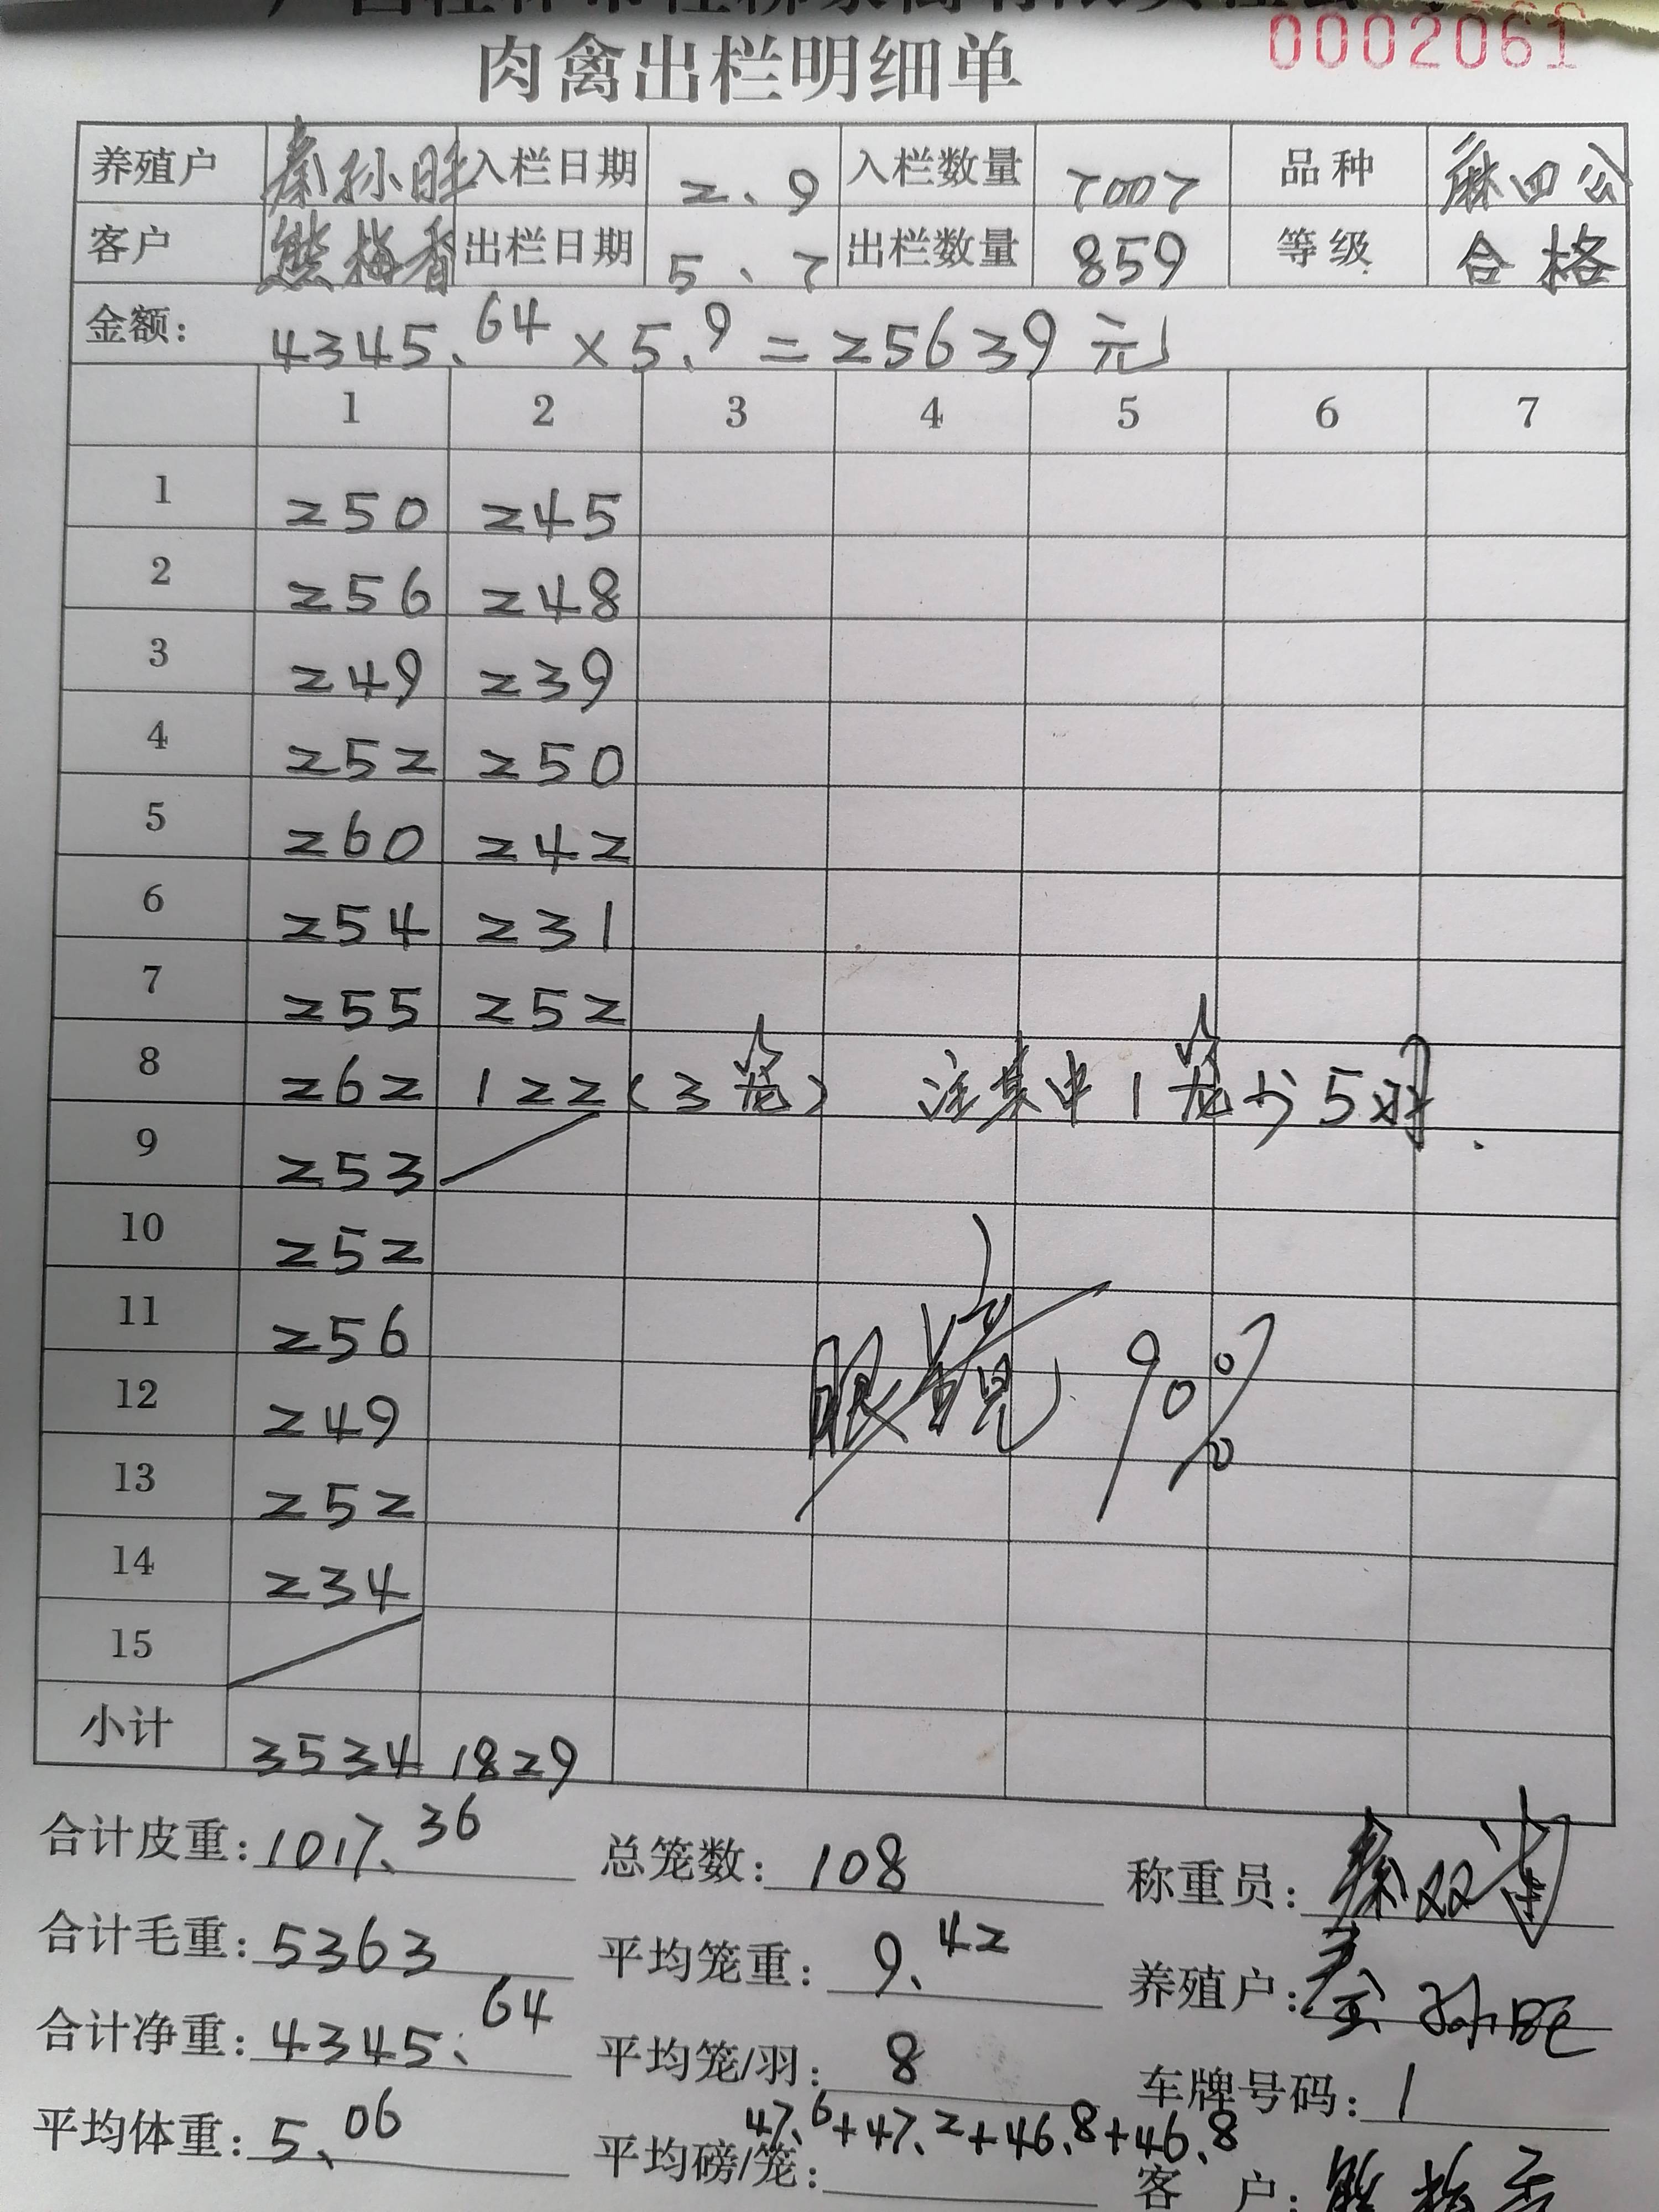 0002061
肉禽出栏明细单
养殖户 秦孙旺 入栏日期 2.9 入栏数量 7007 品种 麻四公
客户 熊梅香 出栏日期 5.7 出栏数量 859 等级 合格
金额: 4345.64×5.9=25639元
1 2 3 4 5 6 7
1 250 245
2 256 248
3 249 239
4 252 250
5 260 242
6 254 231
7 255 252
8 262 122(3笼) 注其中1笼少5羽.
9 253
10 252
11 256
12 249
13 252
14 234
15
小计 3534 1829
90%
合计皮重: 1017.36 总笼数: 108 称重员: 秦双
合计毛重: 5363 平均笼重: 9.42 养殖户: 秦孙旺
合计净重: 4345.64 平均笼/羽: 8 车牌号码: 1
47.6+47.2+46.8+46.8
平均体重: 5.06 平均磅/笼: 客户: 熊梅香